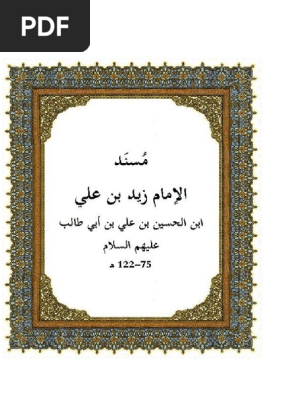 PDF
مُسنَد
الإمام زيد بن علي
ابن الحسين بن علي بن أبي طالب
عليهم السلام
75–122 هـ